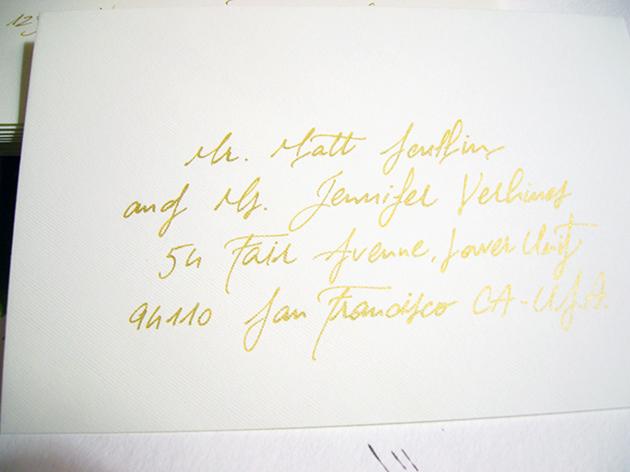 Mr. Matt
and Ms. Jennifer Verhines
54 Fair Avenue, Lower Unit
94110 San Francisco CA-USA